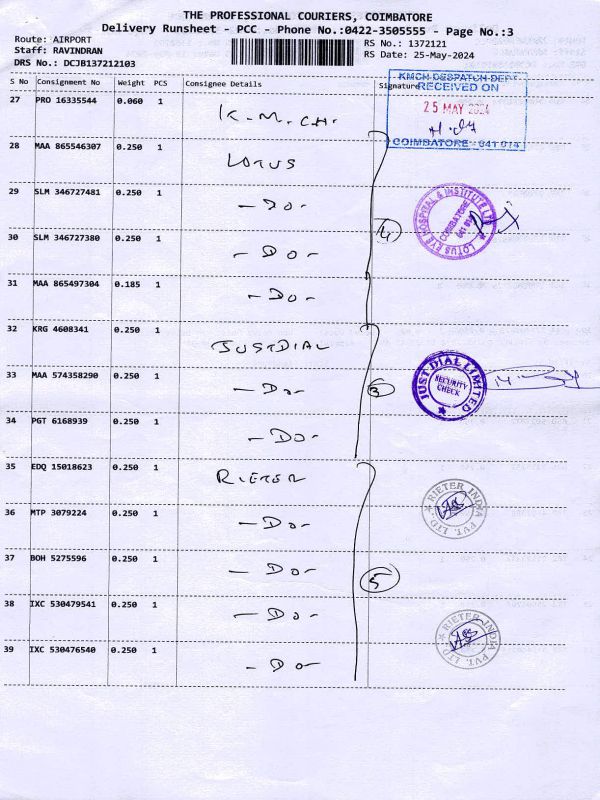 THE PROFESSIONAL COURIERS, COIMBATORE
Delivery Runsheet - PCC - Phone No.:0422-3505555 - Page No.:3
Route: AIRPORT
Staff: RAVINDRAN
DRS No.: DCJB137212103
RS No.: 1372121
RS Date: 25-May-2024
S No Consignment No Weight PCS Consignee Details Signature
KMCH DESPATCH DEPT
RECEIVED ON
25 MAY 2024
COIMBATORE - 641 014
27 PRO 16335544 0.060 1 K.M.CH.
28 MAA 865546307 0.250 1 LOTUS
29 SLM 346727481 0.250 1 - Do -
30 SLM 346727380 0.250 1 - Do -
31 MAA 865497304 0.185 1 - Do -
4
LOTUS EYE HOSPITAL & INSTITUTE LTD
COIMBATORE
32 KRG 4608341 0.250 1 JUSTDIAL
33 MAA 574358290 0.250 1 - Do -
34 PGT 6168939 0.250 1 - Do -
3
JUST DIAL LIMITED
SECURITY
CHECK
35 EDQ 15018623 0.250 1 RIETER
36 MTP 3079224 0.250 1 - Do -
37 BOH 5275596 0.250 1 - Do -
38 IXC 530479541 0.250 1 - Do -
39 IXC 530476540 0.250 1 - Do -
5
RIETER INDIA PVT. LTD.
RIETER INDIA PVT. LTD.